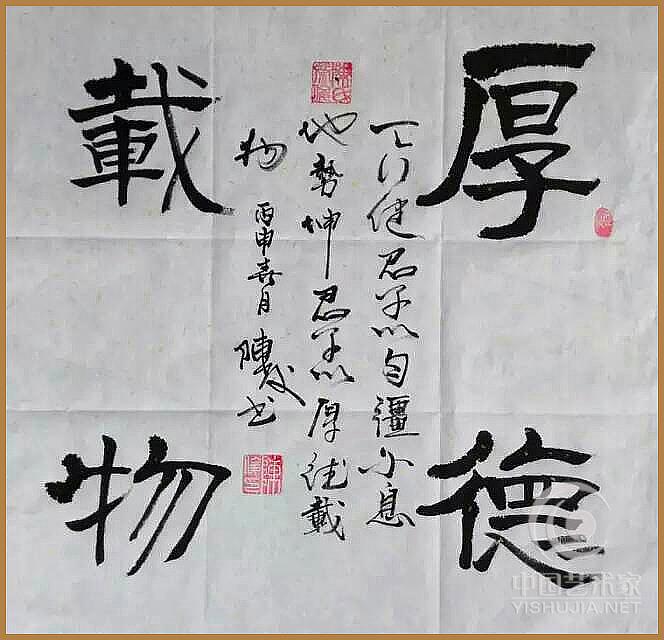 厚德
天行健君子以自疆不息
地勢坤君子以厚德載
物 丙申喜月 陳 书
載物
中国艺术家
YISHUJIA.NET